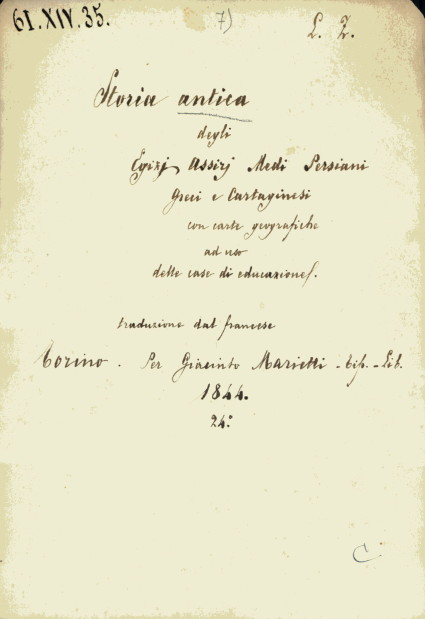 61.XIV.35.
7)
L. Z.
Storia antica
degli
Egizj Assirj Medi Persiani
Greci e Cartaginesi
con carte geografiche
ad uso
delle case di educazione
traduzione dal francese
Torino. Per Giacinto Marietti - tip. - Lib.
1844.
24.°
C